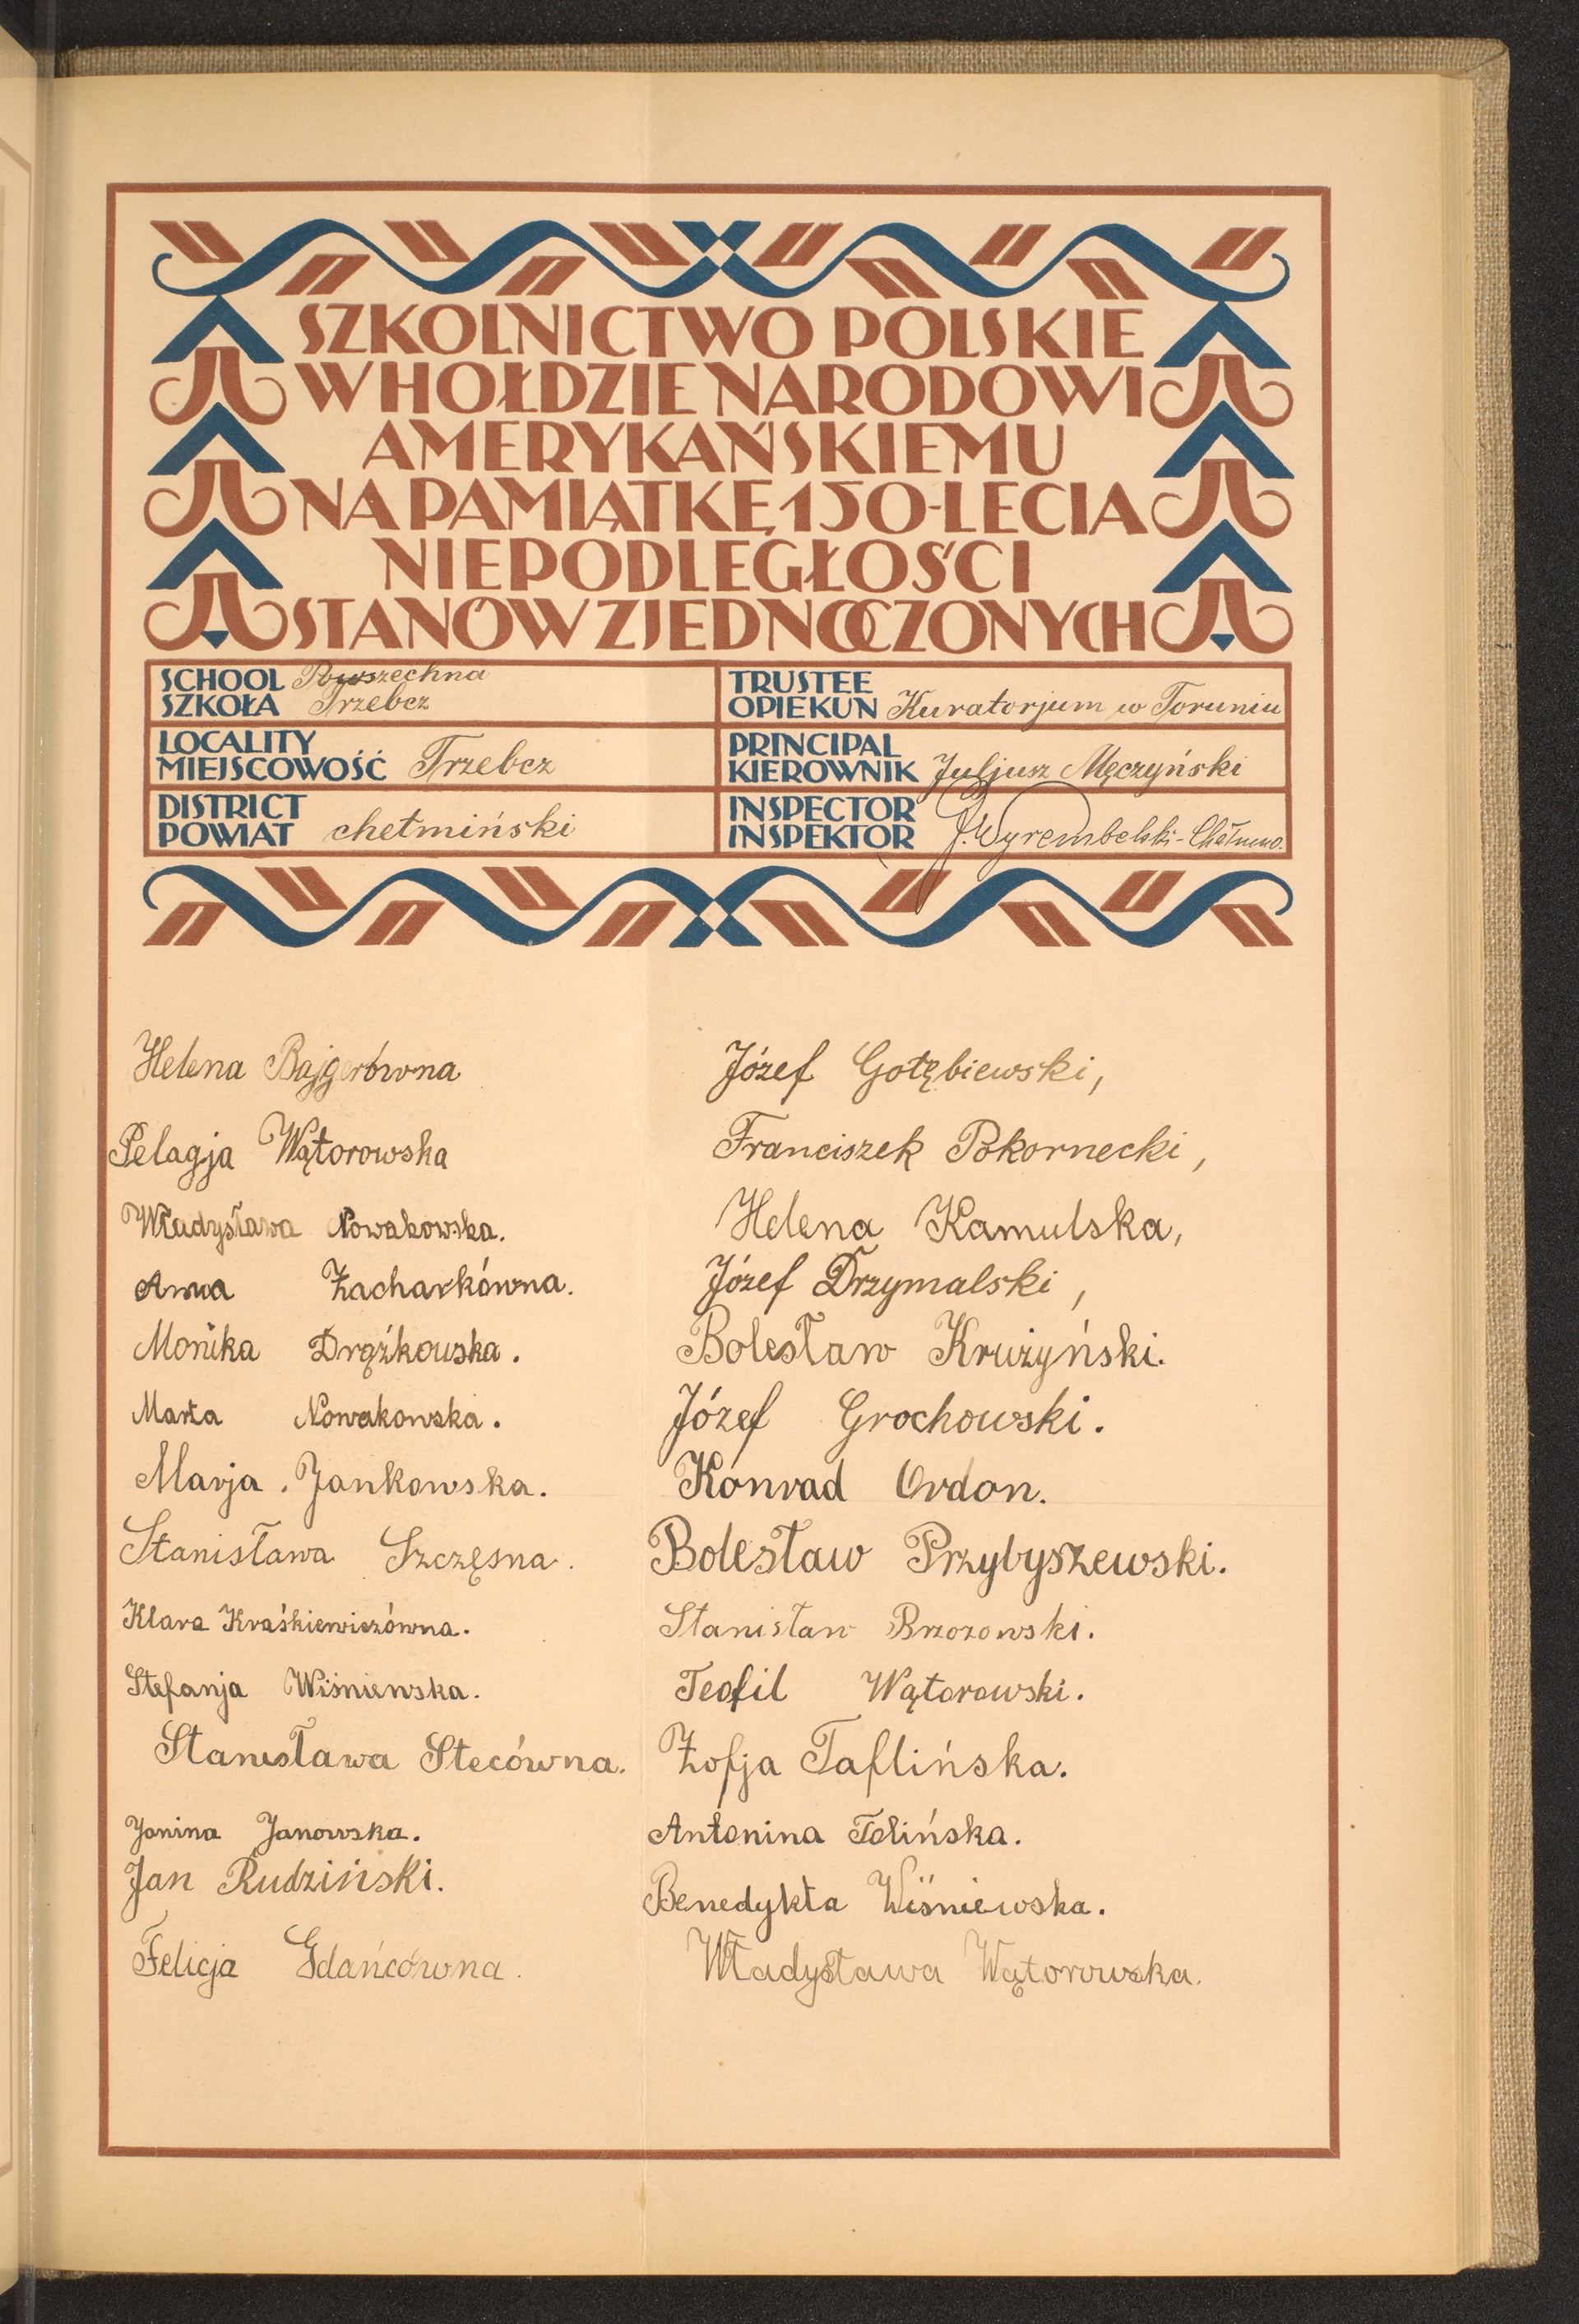 SZKOLNICTWO POLSKIE
W HOŁDZIE NARODOWI
AMERYKAŃSKIEMU
NA PAMIĄTKĘ 150-LECIA
NIEPODLEGŁOŚCI
STANÓW ZJEDNOCZONYCH
SCHOOL Powszechna
SZKOŁA Trzebcz
TRUSTEE
OPIEKUN Kuratorjum w Toruniu
LOCALITY
MIEJSCOWOŚĆ Trzebcz
PRINCIPAL
KIEROWNIK Juljusz Męczyński
DISTRICT
POWIAT chełmiński
INSPECTOR
INSPEKTOR J. Wyrembelski - Chełmno.
Helena Bajgerówna
Pelagja Wątorowska
Władysława Nowakowska.
Anna Zacharkówna.
Monika Drążkowska.
Marta Nowakowska.
Marja Jankowska.
Stanisława Szczęsna.
Klara Kraśkiewiczówna.
Stefanja Wiśniewska.
Stanisława Stecówna.
Janina Janowska.
Jan Rudziński.
Felicja Gdańcówna.
Józef Gołębiewski,
Franciszek Pokornecki,
Helena Kamulska,
Józef Drzymalski,
Bolesław Krużyński.
Józef Grochowski.
Konrad Ordon.
Bolesław Przybyszewski.
Stanisław Brzozowski.
Teofil Wątorowski.
Zofja Taflińska.
Antonina Tolińska.
Benedykta Wiśniewska.
Władysława Wątorowska.